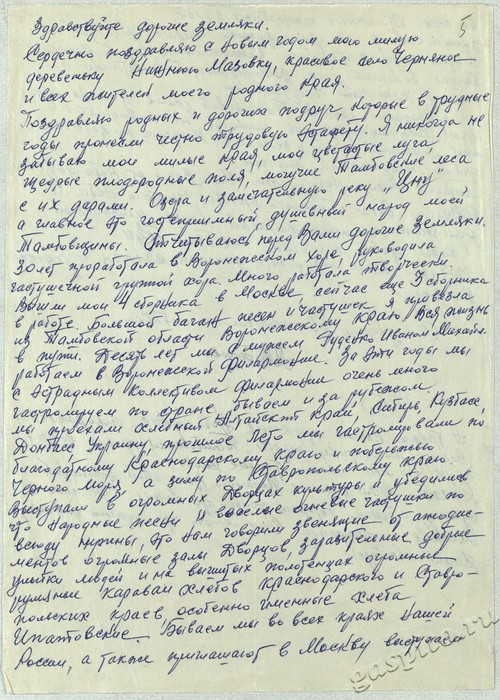 5
Здравствуйте дорогие земляки.
Сердечно поздравляю с Новым годом мою милую
деревеньку Нижнюю Мазовку, красивое село Черняное
и всех жителей моего родного края.
Поздравляю родных и дорогих подруг, которые в трудные
годы пронесли честно трудовую эстафету. Я никогда не
забываю мои милые края, мои цветастые луга,
щедрые плодородные поля, могучие Тамбовские леса
с их дарами. Озера и замечательную реку "Цну"
а главное это гостеприимный, душевный народ моей
Тамбовщины. Отчитываюсь перед Вами дорогие земляки.
30 лет проработала в Воронежском хоре, руководила
частушечной группой хора. Много работала творчески.
Вышли мои 4 сборника в Москве, сейчас еще 3 сборника
в работе. Большой багаж песен и частушек я привезла
из Тамбовской области Воронежскому краю. Вся жизнь
в пути. Десять лет мы с мужем Руденко Иваном Михайл.
работаем в Воронежской филармонии. За эти годы мы
с Эстрадным Коллективом филармонии очень много
гастролируем по стране бываем и за рубежом
мы проехали хлебный Алтайский край, Сибирь, Кузбасс,
Донбасс Украину, прошлое лето мы гастролировали по
благодатному Краснодарскому краю и побережью
Черного моря, а зиму по Ставропольскому краю.
Выступали в огромных Дворцах культуры и убедились
что народные песни и веселые огневые частушки по
всюду нужны. Это нам говорили звенящие от аплодис-
ментов огромные залы Дворцов, заразительные добрые
улыбки людей и на вышитых полотенцах огромные
румяные караваи хлебов Краснодарского и Ставро-
польских краев, особенно именные хлеба
Ипатовские. Бываем мы во всех краях нашей
России, а также приглашают в Москву выступаем
gaspito.ru